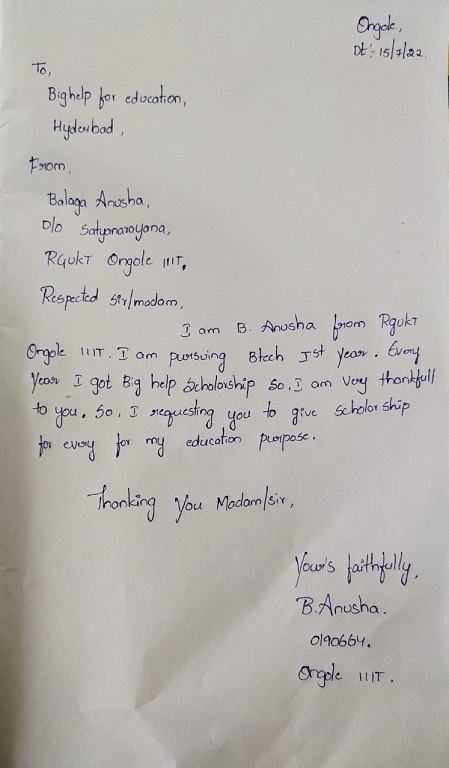 Ongole,
Dt:- 15/7/22.
To,
Bighelp for education,
Hyderbad,
From,
Balaga Anusha,
D/o Satyanarayana,
RGUKT Ongole IIIT,
Respected sir/madam,
I am B. Anusha from Rgukt
Ongole IIIT. I am pursuing Btech Ist Year. Every
Year I got Big help Scholorship So, I am Very thankfull
to you. So, I requesting you to give scholorship
for every for my education purpose.
Thanking You Madam/sir,
Your's faithfully,
B.Anusha.
O190664.
Ongole IIIT.